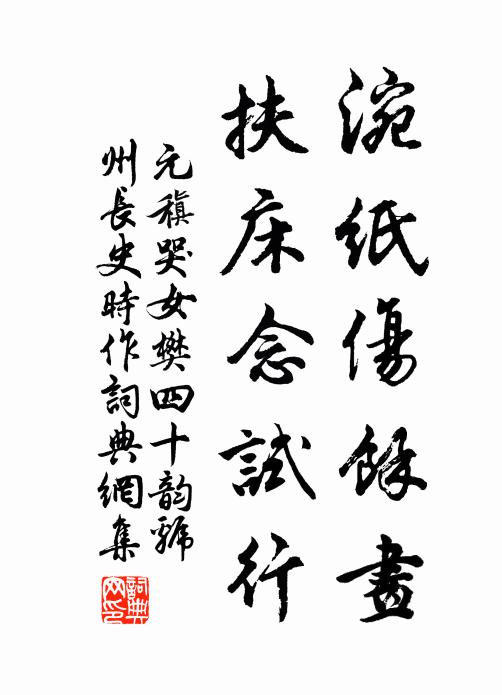 涴紙傷餘畫
扶床念試行
元稹哭女樊四十韵虢
州長史時作詞典網集
詞典網印